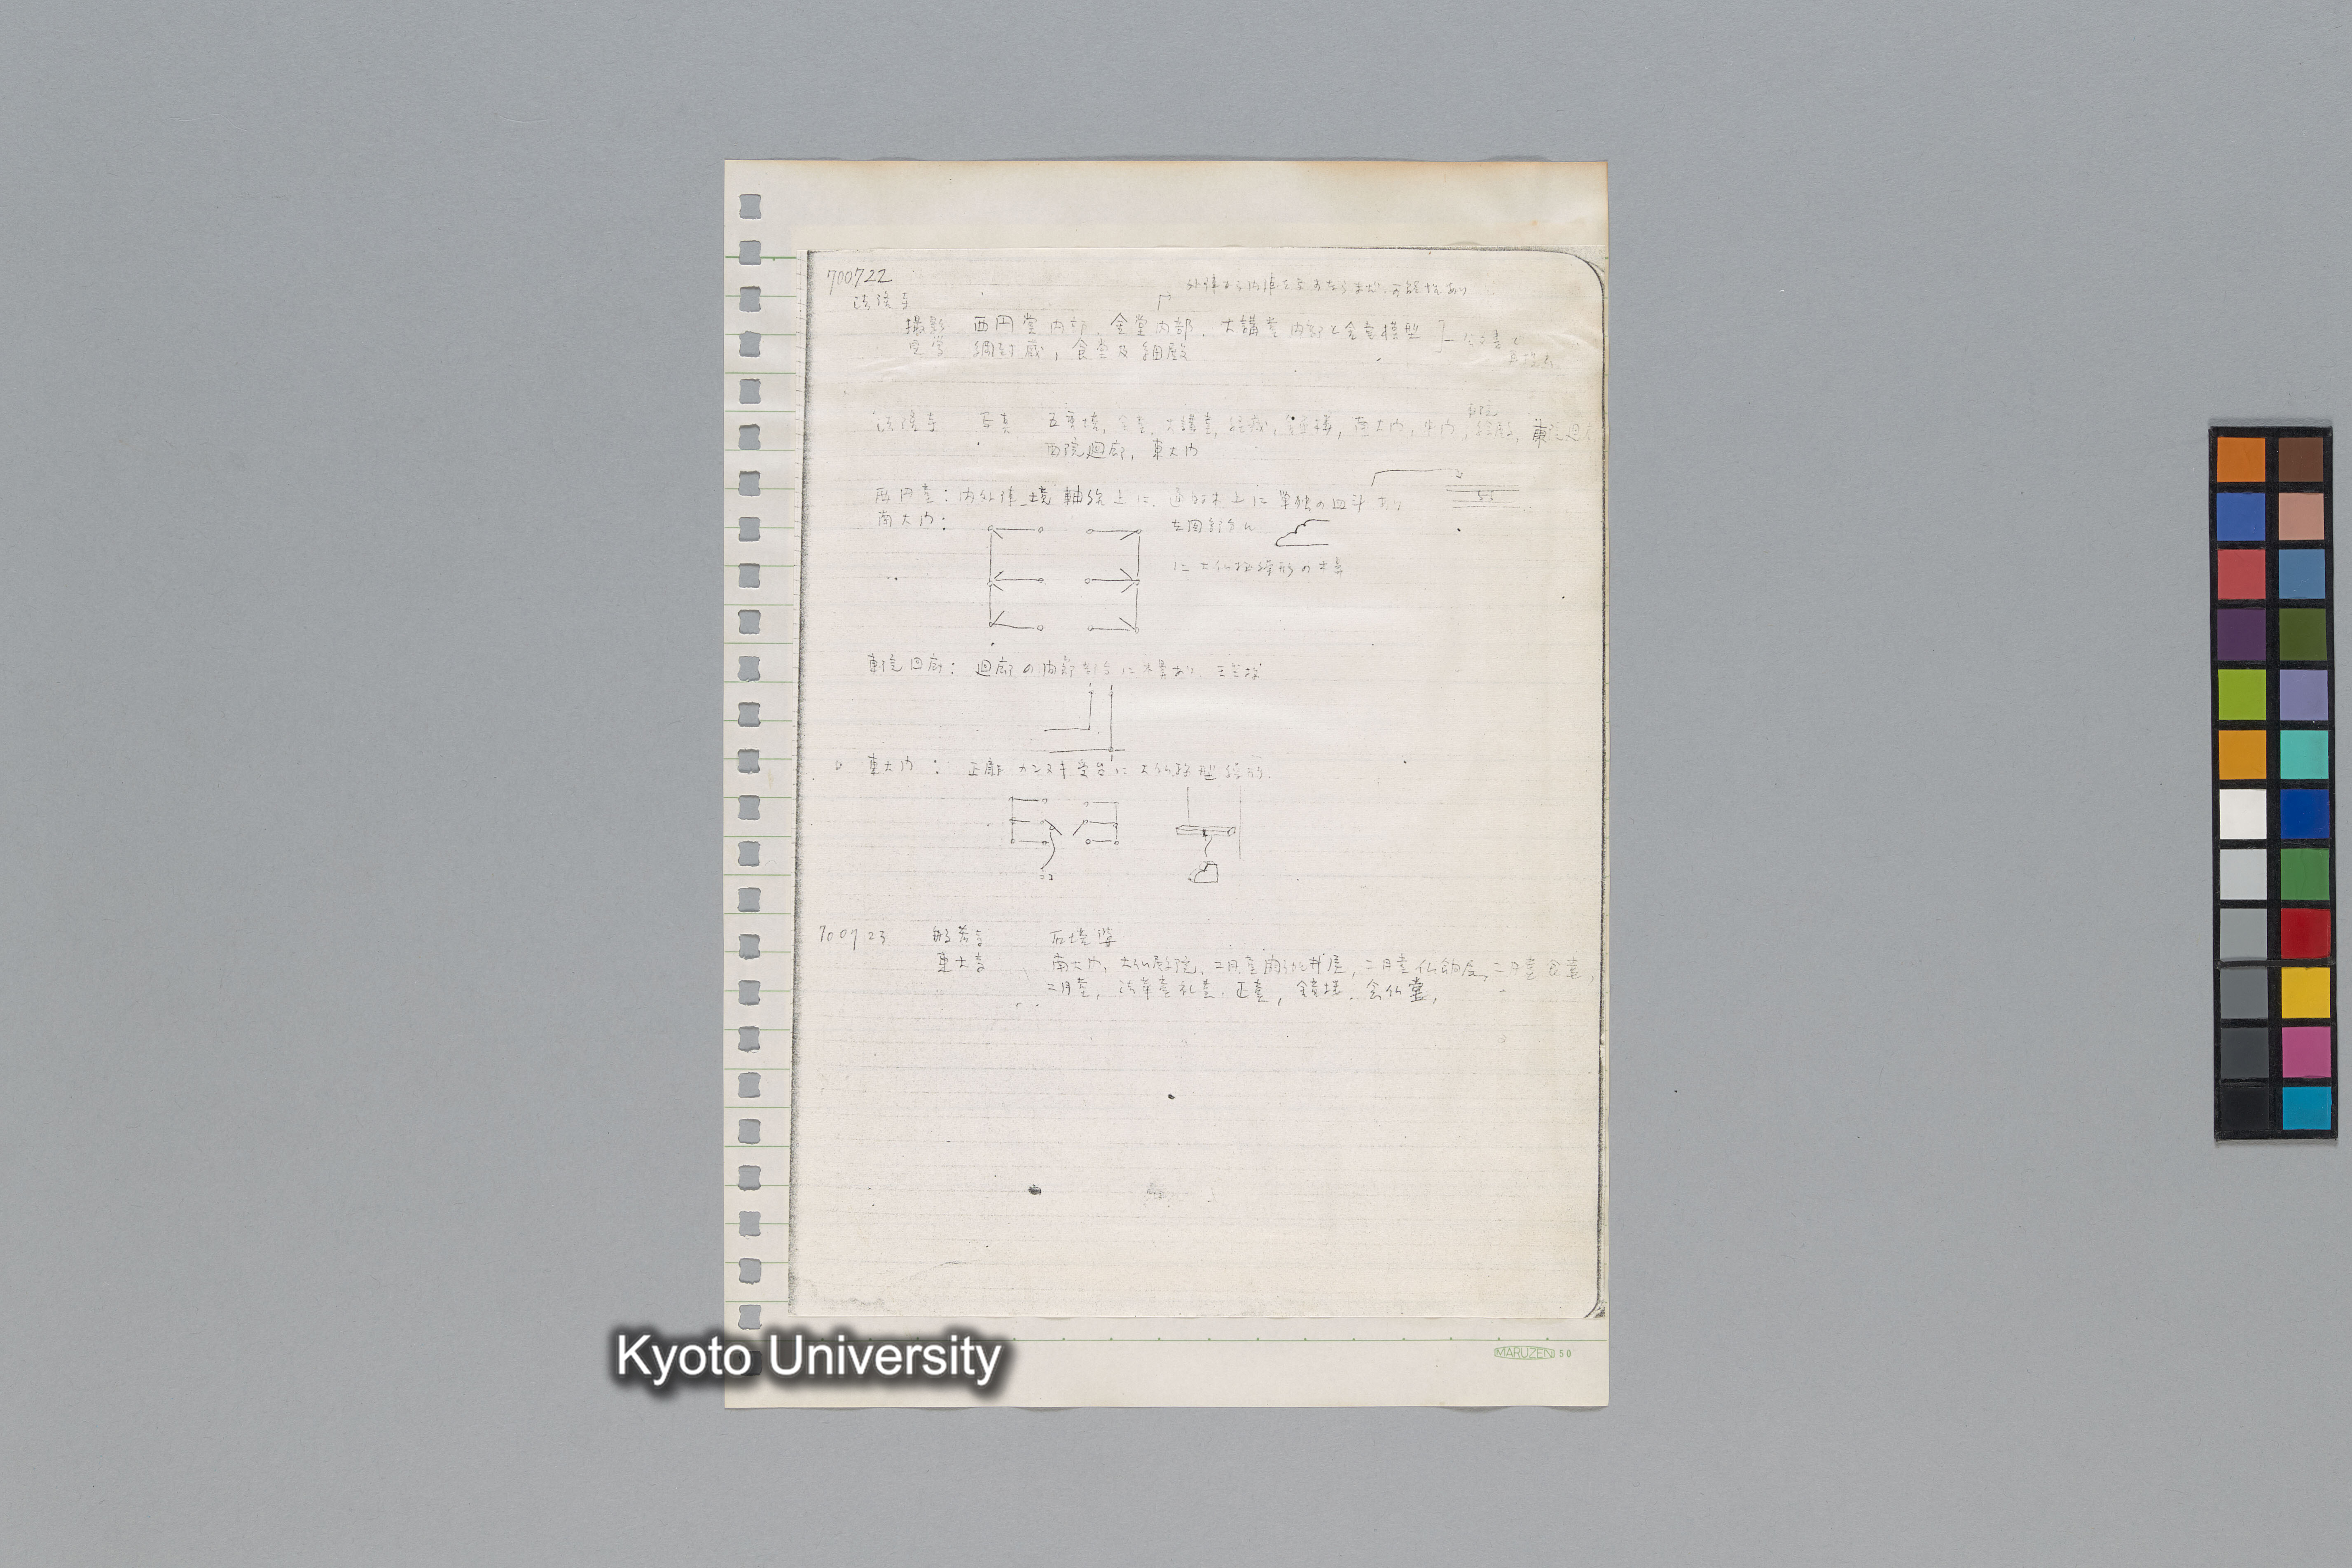 700722
法隆寺
外陣から内陣を写すならまだ可能性あり
撮影 西円堂内部、金堂内部、大講堂内部と金堂模型
見学 綱封蔵, 食堂及細殿
公文書と
法隆寺 写真 五重塔, 金堂, 大講堂, 経蔵, 鐘楼, 南大門, 中門, 東院廻廊
西院廻廊, 東大門
西円堂: 内外陣境軸線上に、通肘木上に単独の皿斗あり
南大門:
左図部分に
に大仏様繰形の木鼻
東院回廊: 廻廊の内部部分に木鼻あり
東大門: 正面カンヌキ受台に大仏様型繰形.
700723 般若寺 石塔婆
東大寺 南大門, 大仏殿院, 二月堂閼伽井屋, 二月堂仏餉屋, 二月堂食堂,
二月堂, 法華堂礼堂, 正堂, 鐘楼, 念仏堂,
MARUZEN 50
Kyoto University